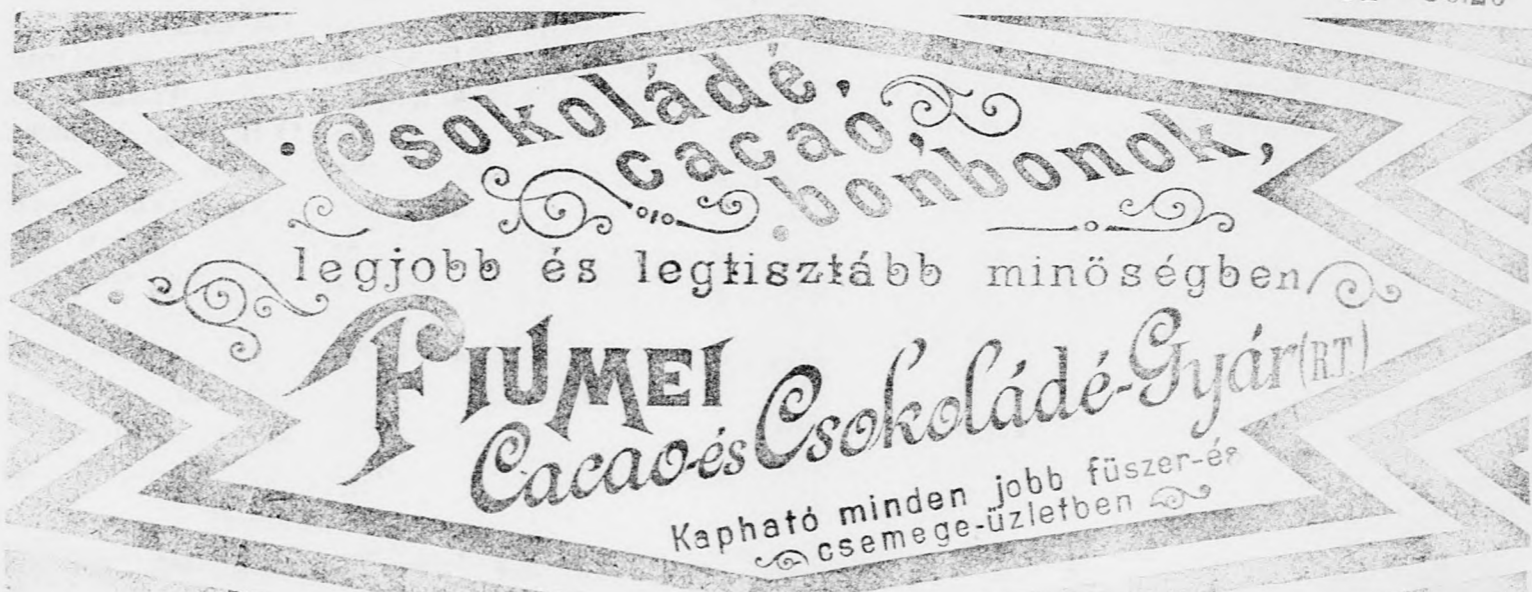 Csokoládé,
cacaó,
bonbonok,
legjobb és legtisztább minöségben
FIUMEI
Cacao-és Csokoládé-Gyár (R.T.)
Kapható minden jobb füszer-és
csemege-üzletben